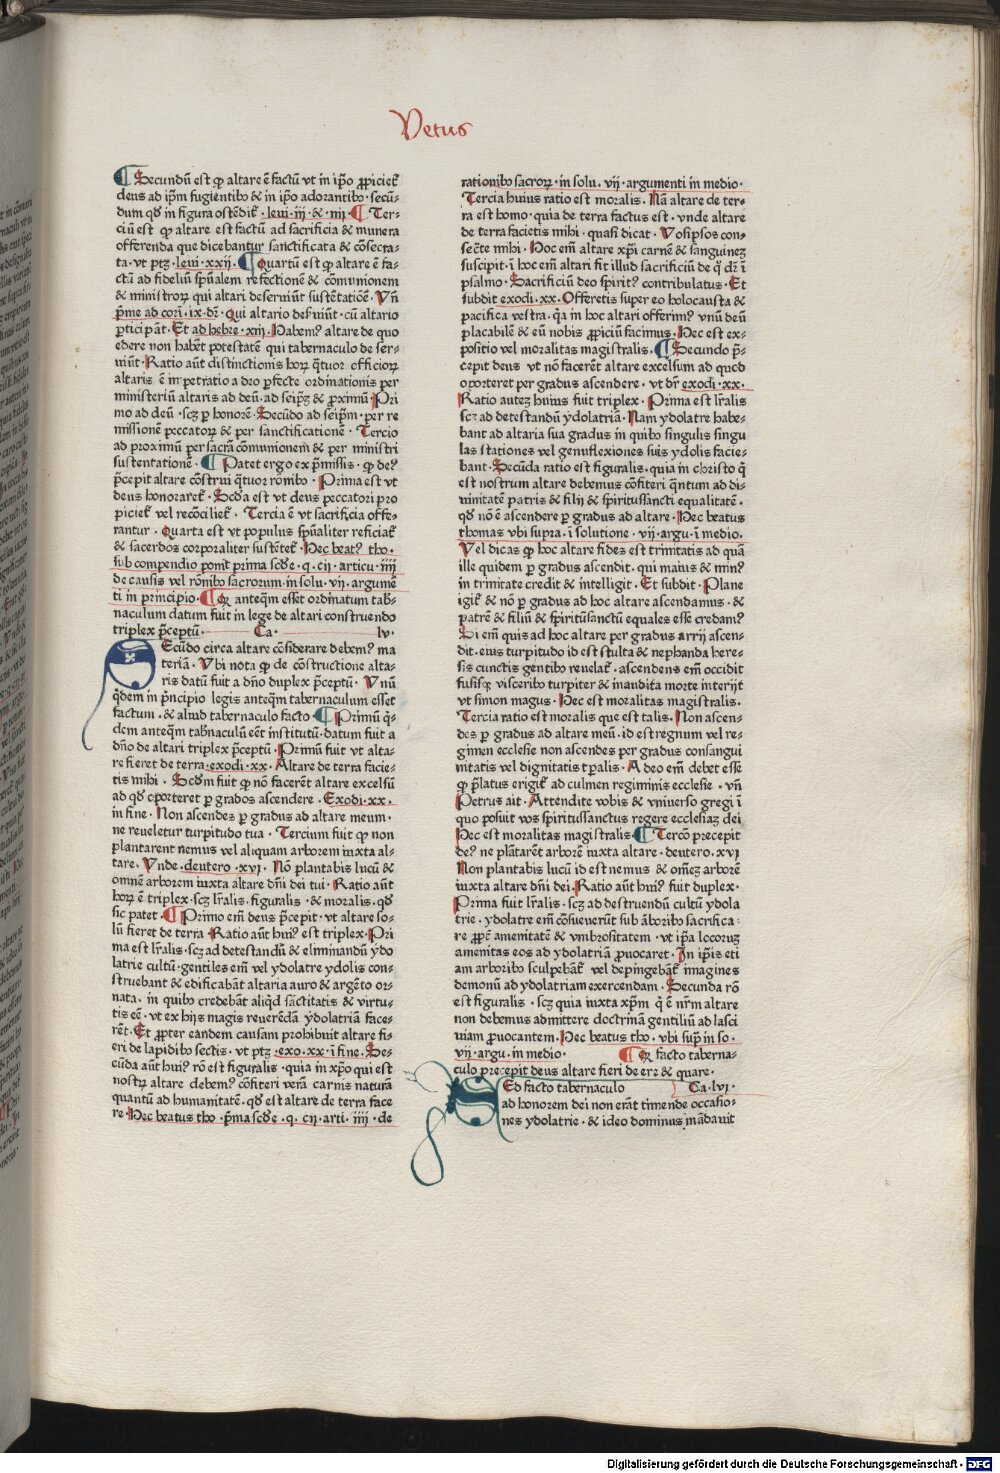 Vetus
¶ Secundũ est ꝙ altare ẽ factũ vt in ip̃o ꝓpiciet᷒
deus ad ip̃m fugientibꝰ & in ip̃o adorantibꝰ · secũ-
dum qd̃ in figura ostẽdit᷒ · leui · iij · & · iiij · ¶ Ter-
ciũ est ꝙ altare est factũ ad sacrificia & munera
offerenda que dicebantur sanctificata & cõsecra-
ta · vt ptꝫ · leui · xxij · ¶ Quartũ est ꝙ altare ẽ fa-
ctũ ad fideliũ sp̃ualem refectionẽ & cõmunionem
& ministroꝝ qui altari deseruiũt sustẽtatiõẽ · Vñ
p̃me ad cori · ix · dꝛ̃ · Qui altario des̃uiũt · cũ altario
ꝑticipãt · Et ad hebre · xiij · Habemꝰ altare de quo
edere non habẽt potestatẽ qui tabernaculo de ser-
uiũt · Ratio aũt distinctionis hoꝝ q̃tuor officioꝝ
altaris ẽ impetratio a deo ꝑfecte ordinationis per
ministeriũ altaris ad deũ · ad seip̃ꝫ & ꝓximũ · Pri
mo ad deũ · scꝫ ꝑ honorẽ · Secũdo ad seip̃m · per re
missionẽ peccatoꝝ & per sanctificationẽ · Tercio
ad proximũ per sacrã cõmunionem & per ministri
sustentationẽ · ¶ Patet ergo ex p̃missis · ꝙ deꝰ
p̃cepit altare cõstrui q̃tuor rõnibꝰ · Prima est vt
deus honoraret᷒ · Scd̃a est vt deus peccatori pro
piciet᷒ vel recõciliet᷒ · Tercia ẽ vt sacrificia offe-
rantur · Quarta est vt populus sp̃ualiter reficiat᷒
& sacerdos corporaliter sustẽtet᷒ · Hec beatꝰ tho ·
sub compendio ponit prima scd̃e · q · cij · articu · iiij
de causis vel rõnibꝰ sacrorum in solu · vij · argumẽ
ti in principio · ¶ Qꝛ anteq̃m esset ordinatum tab̃-
naculum datum fuit in lege de altari construendo
triplex p̃ceptũ · Ca · lv ·
Secũdo circa altare cõsiderare debemꝰ ma
teriã · Vbi nota ꝙ de cõstructione alta-
ris datũ fuit a dño duplex p̃ceptũ · Vnũ
q̃dem in p̃ncipio legis anteq̃m tabernaculum esset
factum · & aliud tabernaculo facto · ¶ Primũ q̃-
dem anteq̃m tab̃naculũ eẽt institutũ · datum fuit a
dño de altari triplex p̃ceptũ · Primũ fuit vt alta-
re fieret de terra · exodi · xx · Altare de terra facie-
tis mihi · Scd̃m fuit ꝙ nõ facerẽt altare excelsũ
ad qd̃ oporteret ꝑ gradꝰ ascendere · Exodi · xx ·
in fine · Non ascendes ꝑ gradus ad altare meum ·
ne reueletur turpitudo tua · Tercium fuit ꝙ non
plantarent nemus vel aliquam arborem iuxta al-
tare · Vnde · deutero · xvj · Nõ plantabis lucũ &
omnẽ arborem iuxta altare dñi dei tui · Ratio aũt
hoꝝ ẽ triplex · scꝫ lr̃alis · figuralis · & moralis · qd̃
sic patet · ¶ Primo em̃ deus p̃cepit · vt altare so-
lũ fieret de terra · Ratio aũt huiꝰ est triplex · Pri
ma est lr̃alis · scꝫ ad detestandũ & eliminandũ ydo
latrie cultũ · gentiles em̃ vel ydolatre ydolis con-
struebant & edificabãt altaria auro & argẽto or-
nata · in quibꝰ credebãt aliqd̃ sãctitatis & virtu-
tis eẽ · vt ex hijs magis reuerẽdã ydolatriã face-
rẽt · Et ꝓpter eandem causam prohibuit altare fi-
eri de lapidibꝰ sectis · vt ptꝫ · exo · xx · ĩ fine · Se-
cũda aũt huiꝰ rõ est figuralis · quia in xp̃o qui est
nostꝝ altare debemꝰ cõfiteri verã carnis naturã
quantũ ad humanitatẽ · qd̃ est altare de terra face
re · Hec beatus tho · p̃ma scd̃e · q · cij · arti · iiij · de
rationibꝰ sacroꝝ · in solu · vij · argumenti in medio ·
Tercia huius ratio est moralis · Nã altare de ter-
ra est homo · quia de terra factus est · vnde altare
de terra facietis mihi · quasi dicat · Vos ip̃sos con-
secr̃te mihi · Hoc em̃ altare xp̃i carnẽ & sanguinẽ
suscipit · ĩ hoc em̃ altari fit illud sacrificiũ de q̃ dꝛ̃ ĩ
psalmo · Sacrificiũ deo spiritꝰ contribulatus · Et
subdit exodi · xx · Offeretis super eo holocausta &
pacifica vestra · q̃a in hoc altari offerimꝰ vnũ deũ
placabilẽ & eũ nobis ꝓpiciũ facimus · Hec est ex-
positio vel moralitas magistralis · ¶ Secundo p̃-
cepit deus vt nõ facerẽt altare excelsum ad quod
oporteret per gradus ascendere · vt dꝛ̃ exodi · xx ·
Ratio autẽ huius fuit triplex · Prima est lr̃alis
scꝫ ad detestandũ ydolatriã · Nam ydolatre habe-
bant ad altaria sua gradus in quibꝰ singulis singu
las stationes vel genuflexiones suis ydolis facie-
bant · Secũda ratio est figuralis · quia in christo q̃
est nostrum altare debemus cõfiteri q̃ntum ad di-
uinitatẽ patris & filij & spiritussãncti equalitatẽ ·
qd̃ nõ ẽ ascendere ꝑ gradus ad altare · Hec beatus
thomas vbi supra · ĩ solutione · vij · argu · ĩ medio ·
Vel dicas ꝙ hoc altare fides est trinitatis ad quã
ille quidem ꝑ gradus ascendit · qui maius & minꝰ
in trinitate credit & intelligit · Et subdit · Plane
igit᷒ & nõ ꝑ gradus ad hoc altare ascendamus · &
patrẽ & filiũ & spiritũsanctũ equales esse credamꝰ
Si em̃ quis ad hoc altare per gradus arrij ascen-
dit · eius turpitudo id est stulta & nephanda here-
sis cunctis gentibꝰ reuelat᷒ · ascendens em̃ occidit
fusisqꝫ visceribꝰ turpiter & inaudita morte interijt
vt simon magus · Hec est moralitas magistralis ·
Tercia ratio est moralis que est talis · Non ascen-
des ꝑ gradus ad altare meũ · id est regnum vel re-
gimen ecclesie non ascendes per gradus consangui
nitatis vel dignitatis tꝑalis · A deo em̃ debet esse
ꝙ p̃latus erigit᷒ ad culmen regiminis ecclesie · vñ
Petrus ait · Attendite vobis & vniuerso gregi ĩ
quo posuit vos spiritussanctus regere ecclesiaꝫ dei
Hec est moralitas magistralis · ¶ Tercõ precepit
deꝰ ne plãtarẽt arborẽ iuxta altare · deutero · xvj
Non plantabis lucũ id est nemus & omẽꝫ arborẽ
iuxta altare dñi dei · Ratio aũt huiꝰ fuit duplex ·
Prima fuit lr̃alis · scꝫ ad destruendũ cultũ ydola
trie · ydolatre em̃ cõsueuerũt sub ãboribꝰ sacrifica-
re ꝓpt̃ amenitatẽ & vmbrositatem · vt ip̃a locoruꝫ
amenitas eos ad ydolatriã ꝓuocaret · In ip̃is eti
am arboribꝰ sculpebãt᷒ vel depingebãt᷒ imagines
demonũ ad ydolatriam exercendam · Secunda rõ
est figuralis · scꝫ quia iuxta xp̃m q̃ ẽ nr̃m altare
non debemus admittere doctrinã gentiliũ ad lasci
uiam ꝓuocantem · Hec beatus tho · vbi sup̃ in so ·
vij · argu · in medio · ¶ Qꝛ facto taberna-
culo precepit deus altare fieri de ere & quare ·
Sed facto tabernaculo Ca · lvj ·
ad honorem dei non erãt timende occasio-
nes ydolatrie · & ideo dominus mãdauit
Digitalisierung gefördert durch die Deutsche Forschungsgemeinschaft - DFG